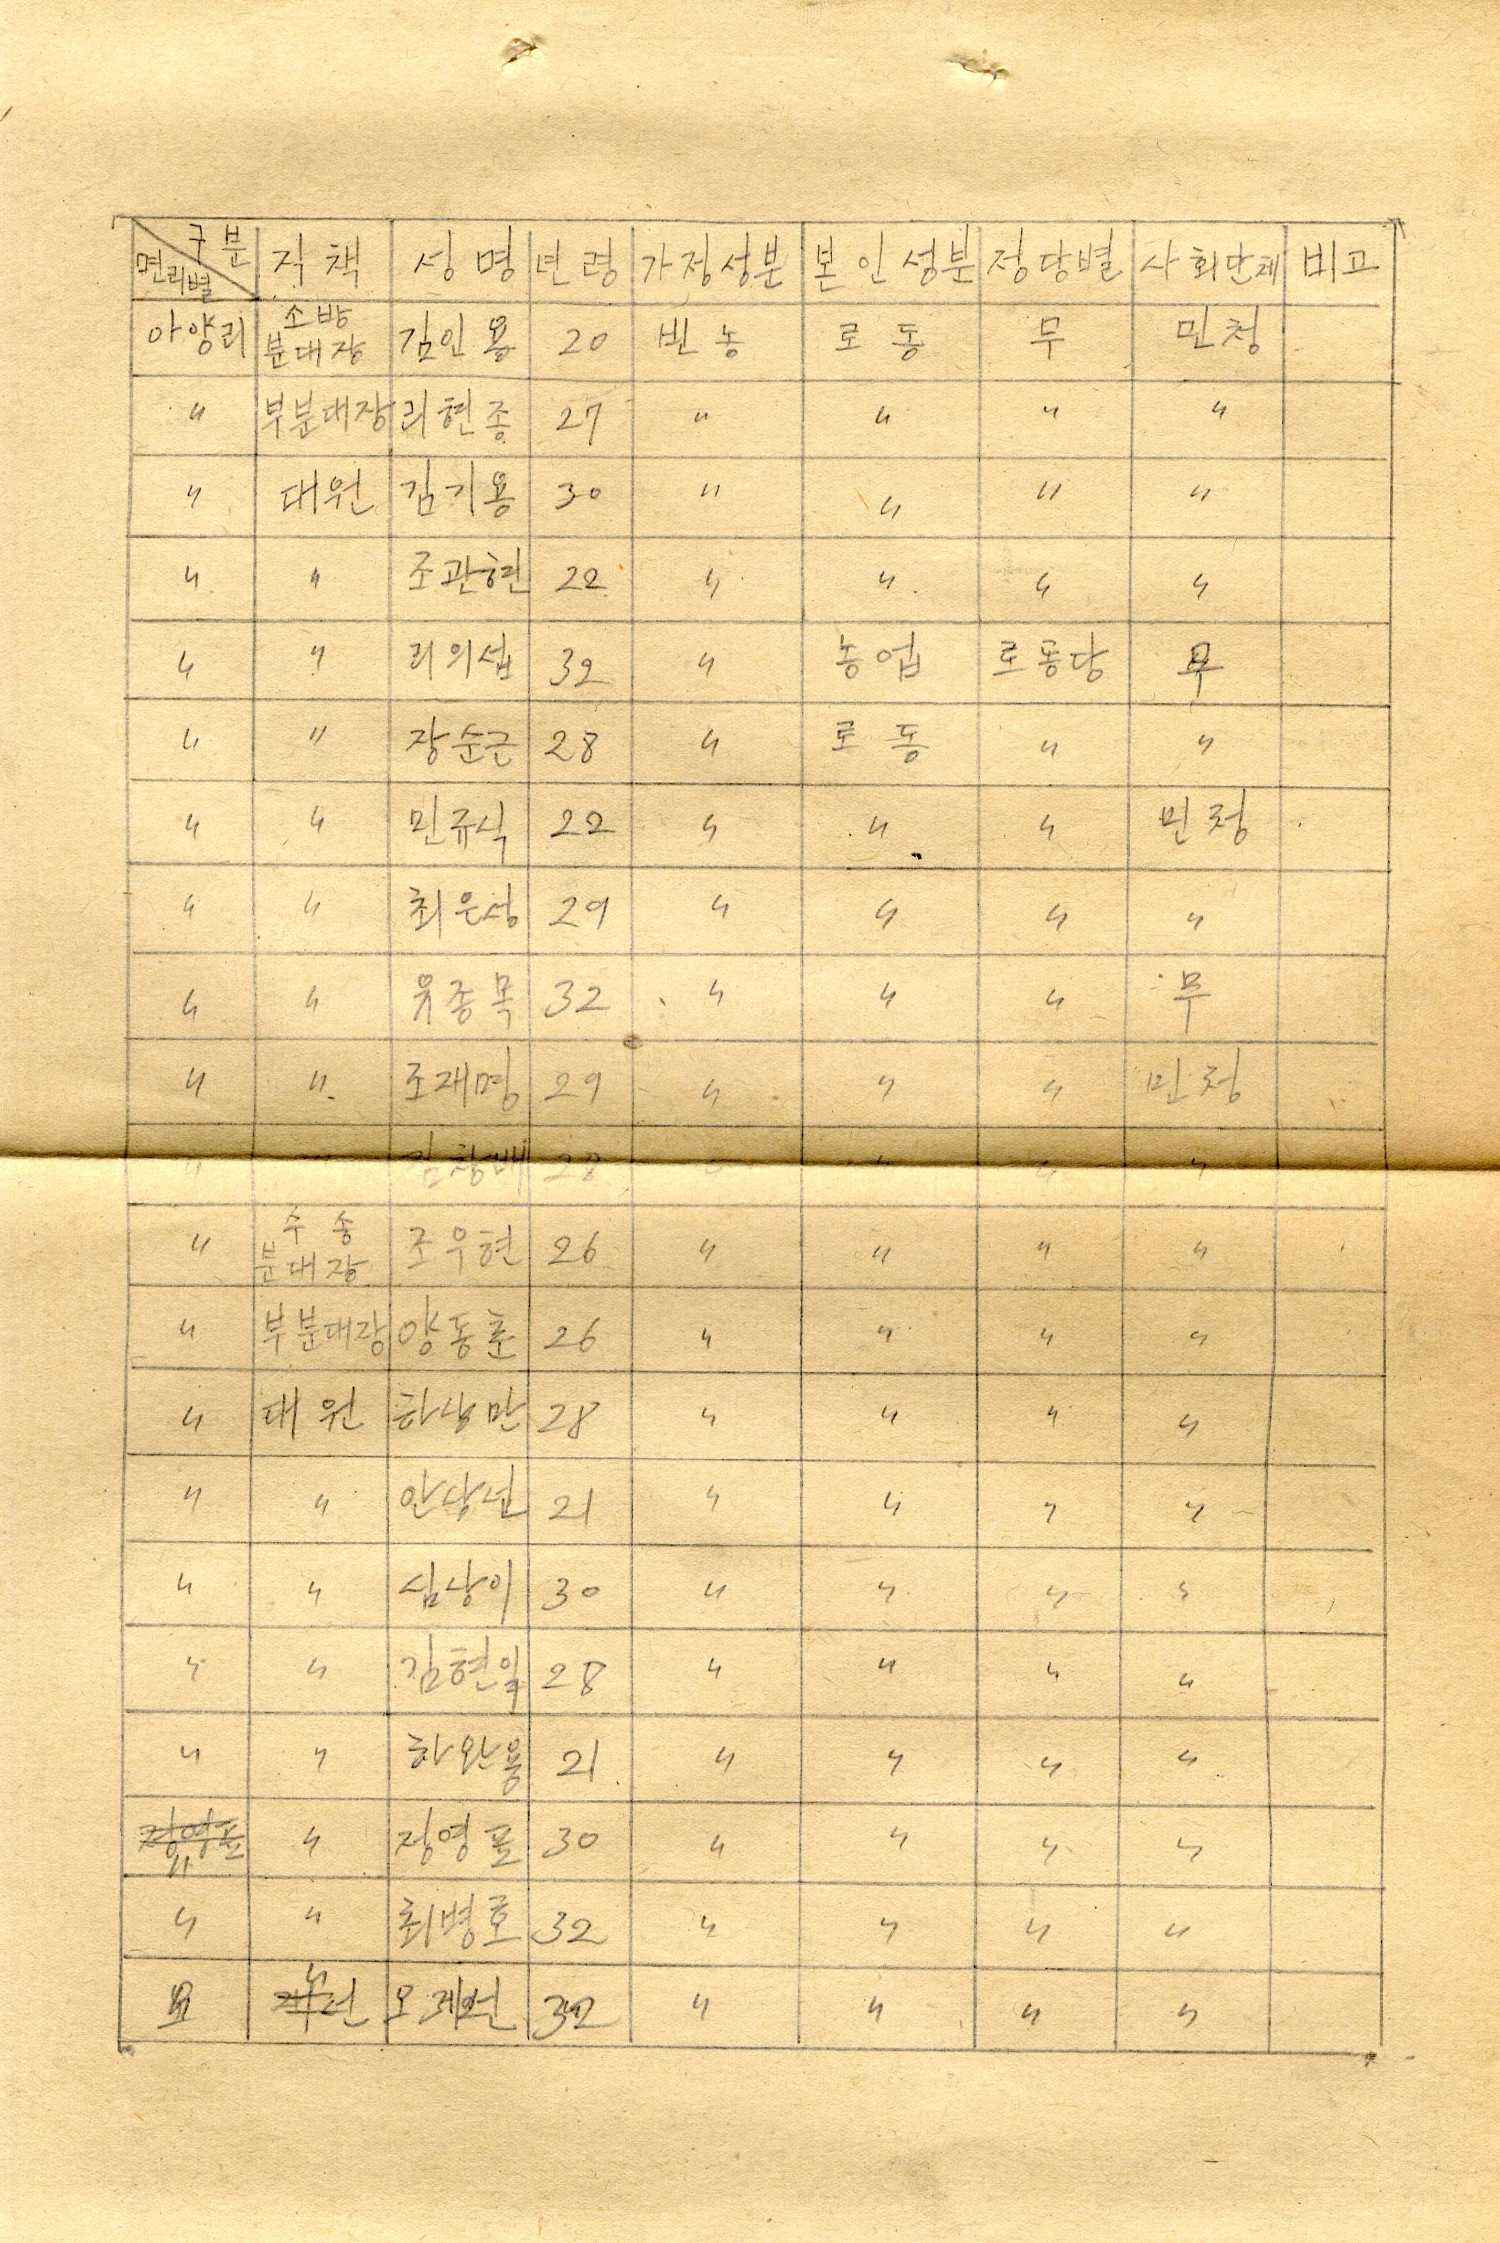 구분 면리별 직책 성명 년령 가정성분 본인성분 정당별 사회단체 비고
아양리 소방분대장 김인용 20 빈농 로동 무 민청
〃 부분대장 리현종 27 〃 〃 〃 〃
〃 대원 김기용 30 〃 〃 〃 〃
〃 〃 조관현 22 〃 〃 〃 〃
〃 〃 리의섭 32 〃 농업 로동당 무
〃 〃 장순근 28 〃 로동 〃 〃
〃 〃 민규식 22 〃 〃 〃 민청
〃 〃 최은성 29 〃 〃 〃 〃
〃 〃 유종목 32 〃 〃 〃 무
〃 〃 조재명 29 〃 〃 〃 민청
〃 〃 28 〃 〃 〃 〃
〃 수송분대장 조우현 26 〃 〃 〃 〃
〃 부분대장 양동춘 26 〃 〃 〃 〃
〃 대원 하상만 28 〃 〃 〃 〃
〃 〃 21 〃 〃 〃 〃
〃 〃 심상이 30 〃 〃 〃 〃
〃 〃 김현일 28 〃 〃 〃 〃
〃 〃 하완용 21 〃 〃 〃 〃
〃 〃 정영표 30 〃 〃 〃 〃
〃 〃 최병호 32 〃 〃 〃 〃
〃 32 〃 〃 〃 〃